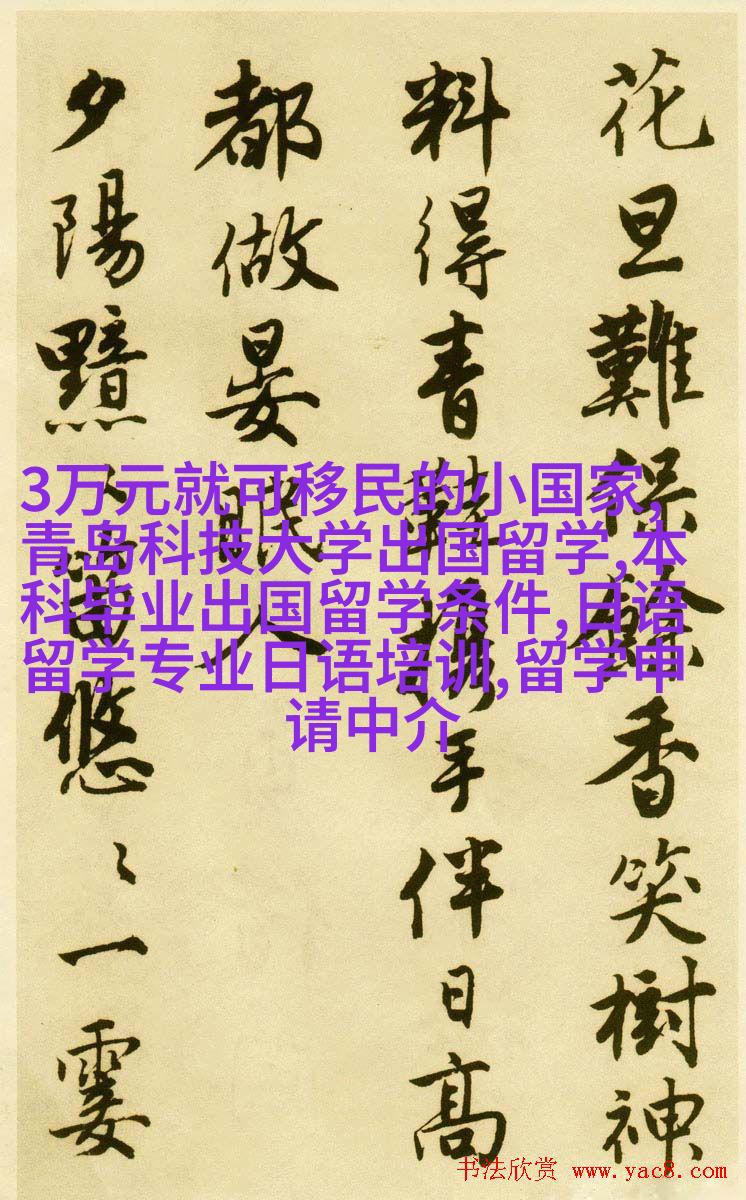 花旦難保餘香笑樹神
料得青鞋攜手伴日高
都做晏眠人
夕陽黯悠〻一霎
3万元就可移民的小国家,
青岛科技大学出国留学,本
科毕业出国留学条件,日语
留学专业日语培训,留学申
请中介
书法欣赏 www.yac8.com